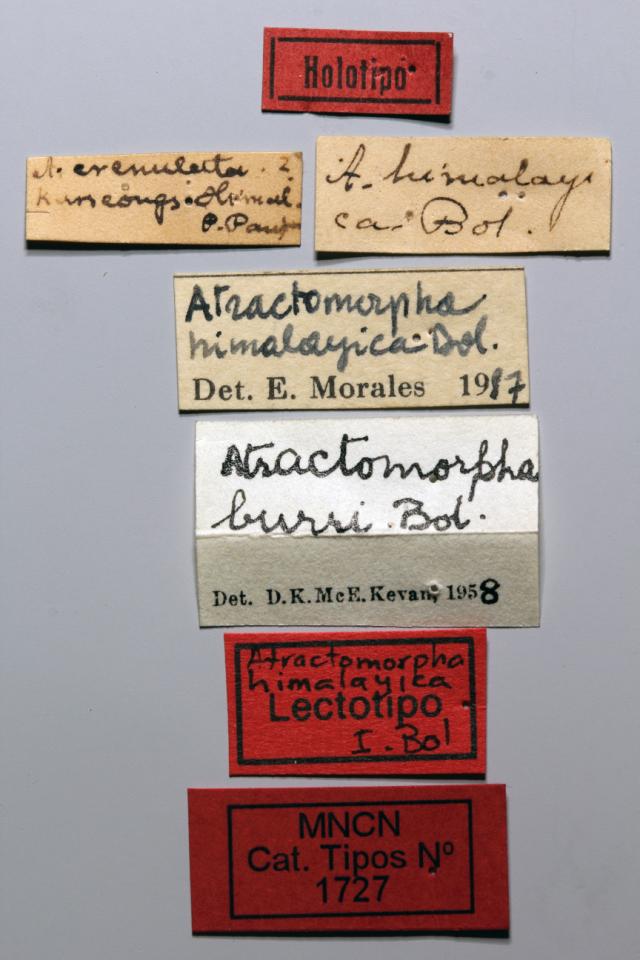 Holotipo
A. crenulata ?
Kurseong. Himal.
P.
A. himalayi
ca. Bol.
Atractomorpha
himalayica Bol.
Det. E. Morales 1987
Atractomorpha
burri. Bol.
Det. D.K.McE.Kevan, 1958
Atractomorpha
himalayica
Lectotipo
I. Bol
MNCN
Cat. Tipos Nº
1727